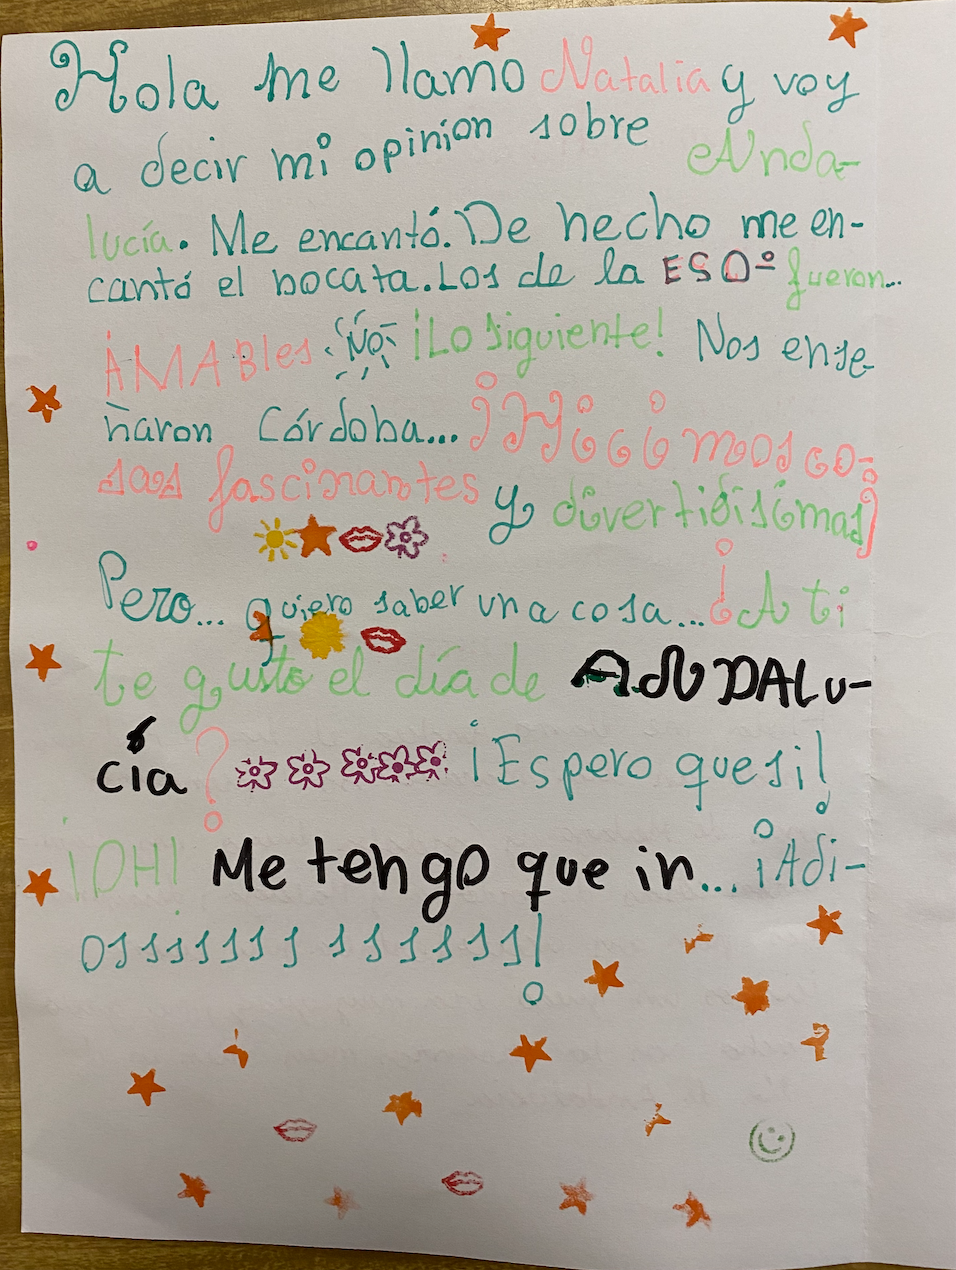 Hola me llamo Natalia y voy
a decir mi opinion sobre Anda-
lucía. Me encantó. De hecho me en-
cantó el bocata. Los de la ESOº fueron...
AMABles NO ¡Lo siguiente! Nos ense-
ñaron Córdoba... ¡Hicimos co-
sas fascinantes y divertidisimas!
Pero... quiero saber una cosa... ¿A ti
te gusto el día de ANDALU-
cía? ¡Espero que si!
¡OH! Me tengo que in... ¡Adi-
osssssss ssssss!